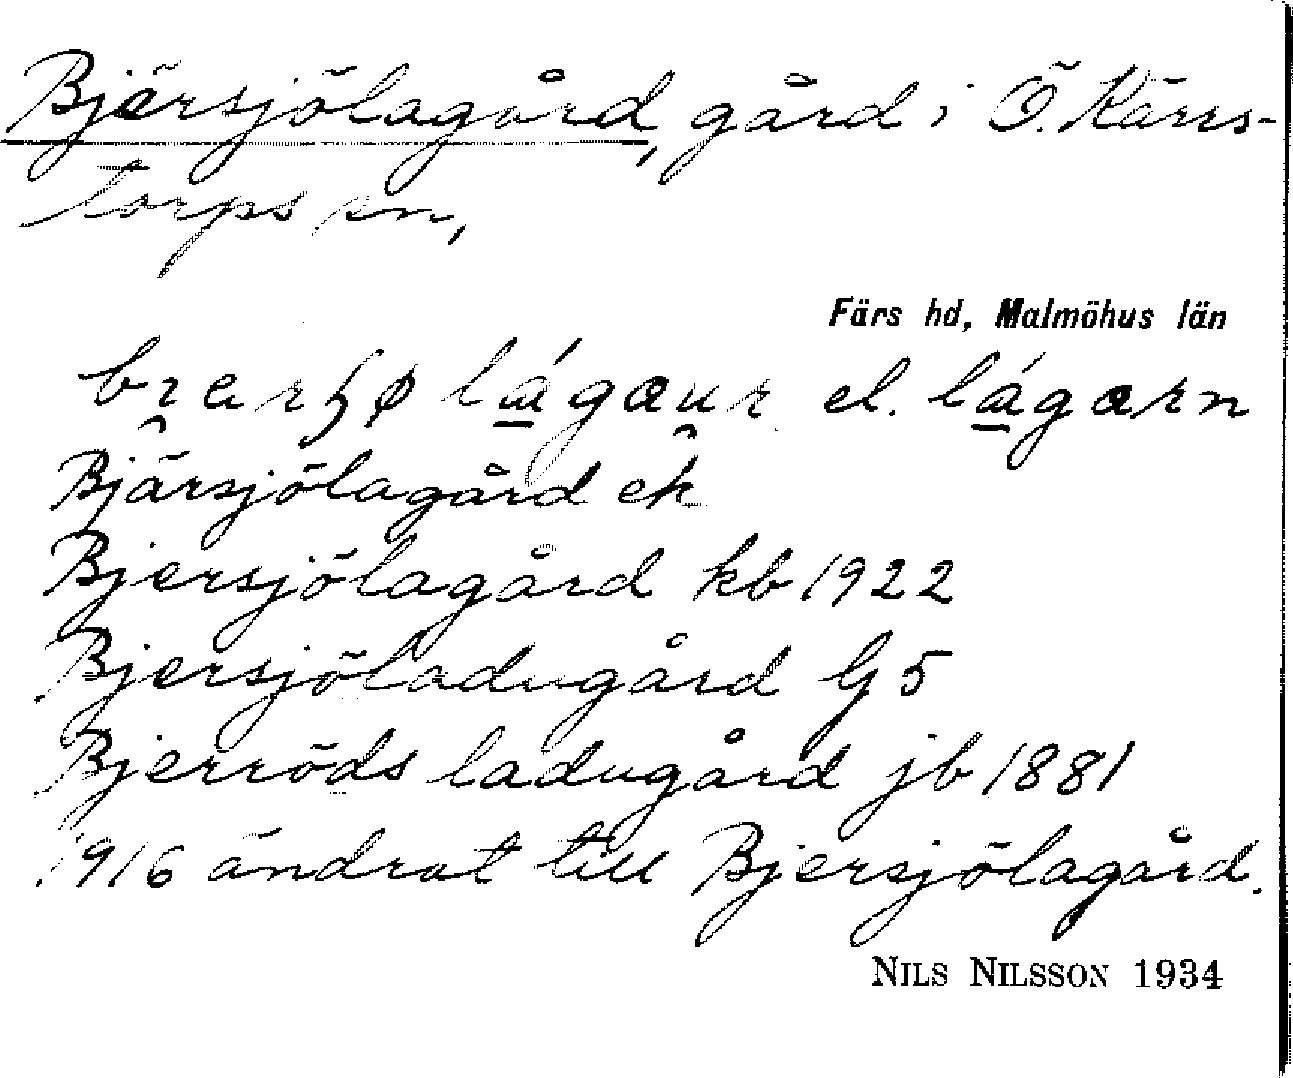 Bjärsjölagård, gård i Ö. Kärrs-
torps sn,
Färs hd, Malmöhus län
el.
Bjärsjölagård ek
Bjersjölagård kb 1922
Bjersjöladugård G 5
Bjerröds ladugård jb 1881
1916 ändrat till Bjersjölagård.
NILS NILSSON 1934